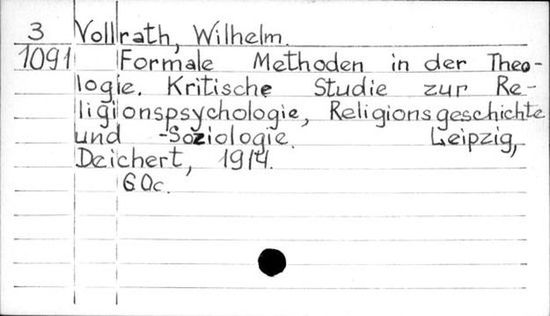 3 Vollrath, Wilhelm.
1091 Formale Methoden in der Theo-
logie. Kritische Studie zur Re-
ligionspsychologie, Religionsgeschichte
und -Soziologie. Leipzig,
Deichert, 1914.
60c.